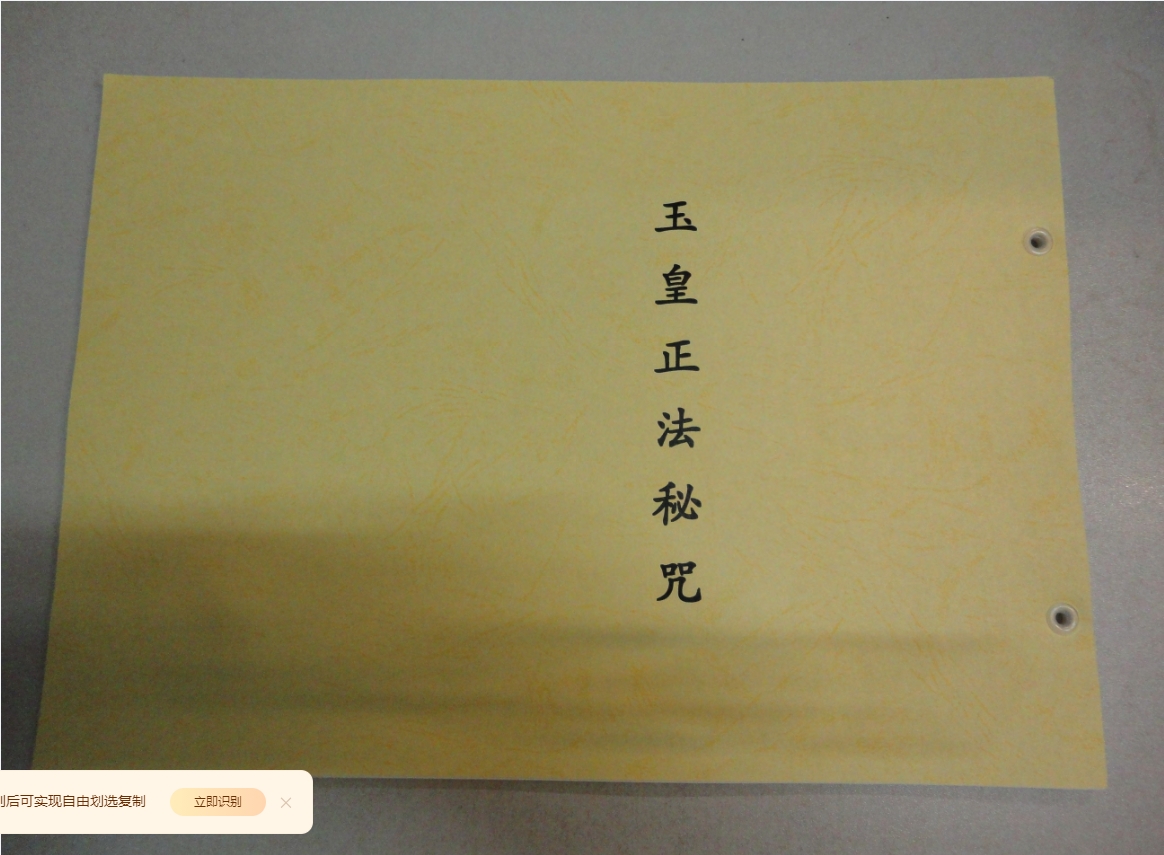 玉皇正法秘咒
后可实现自由划选复制
立即识别